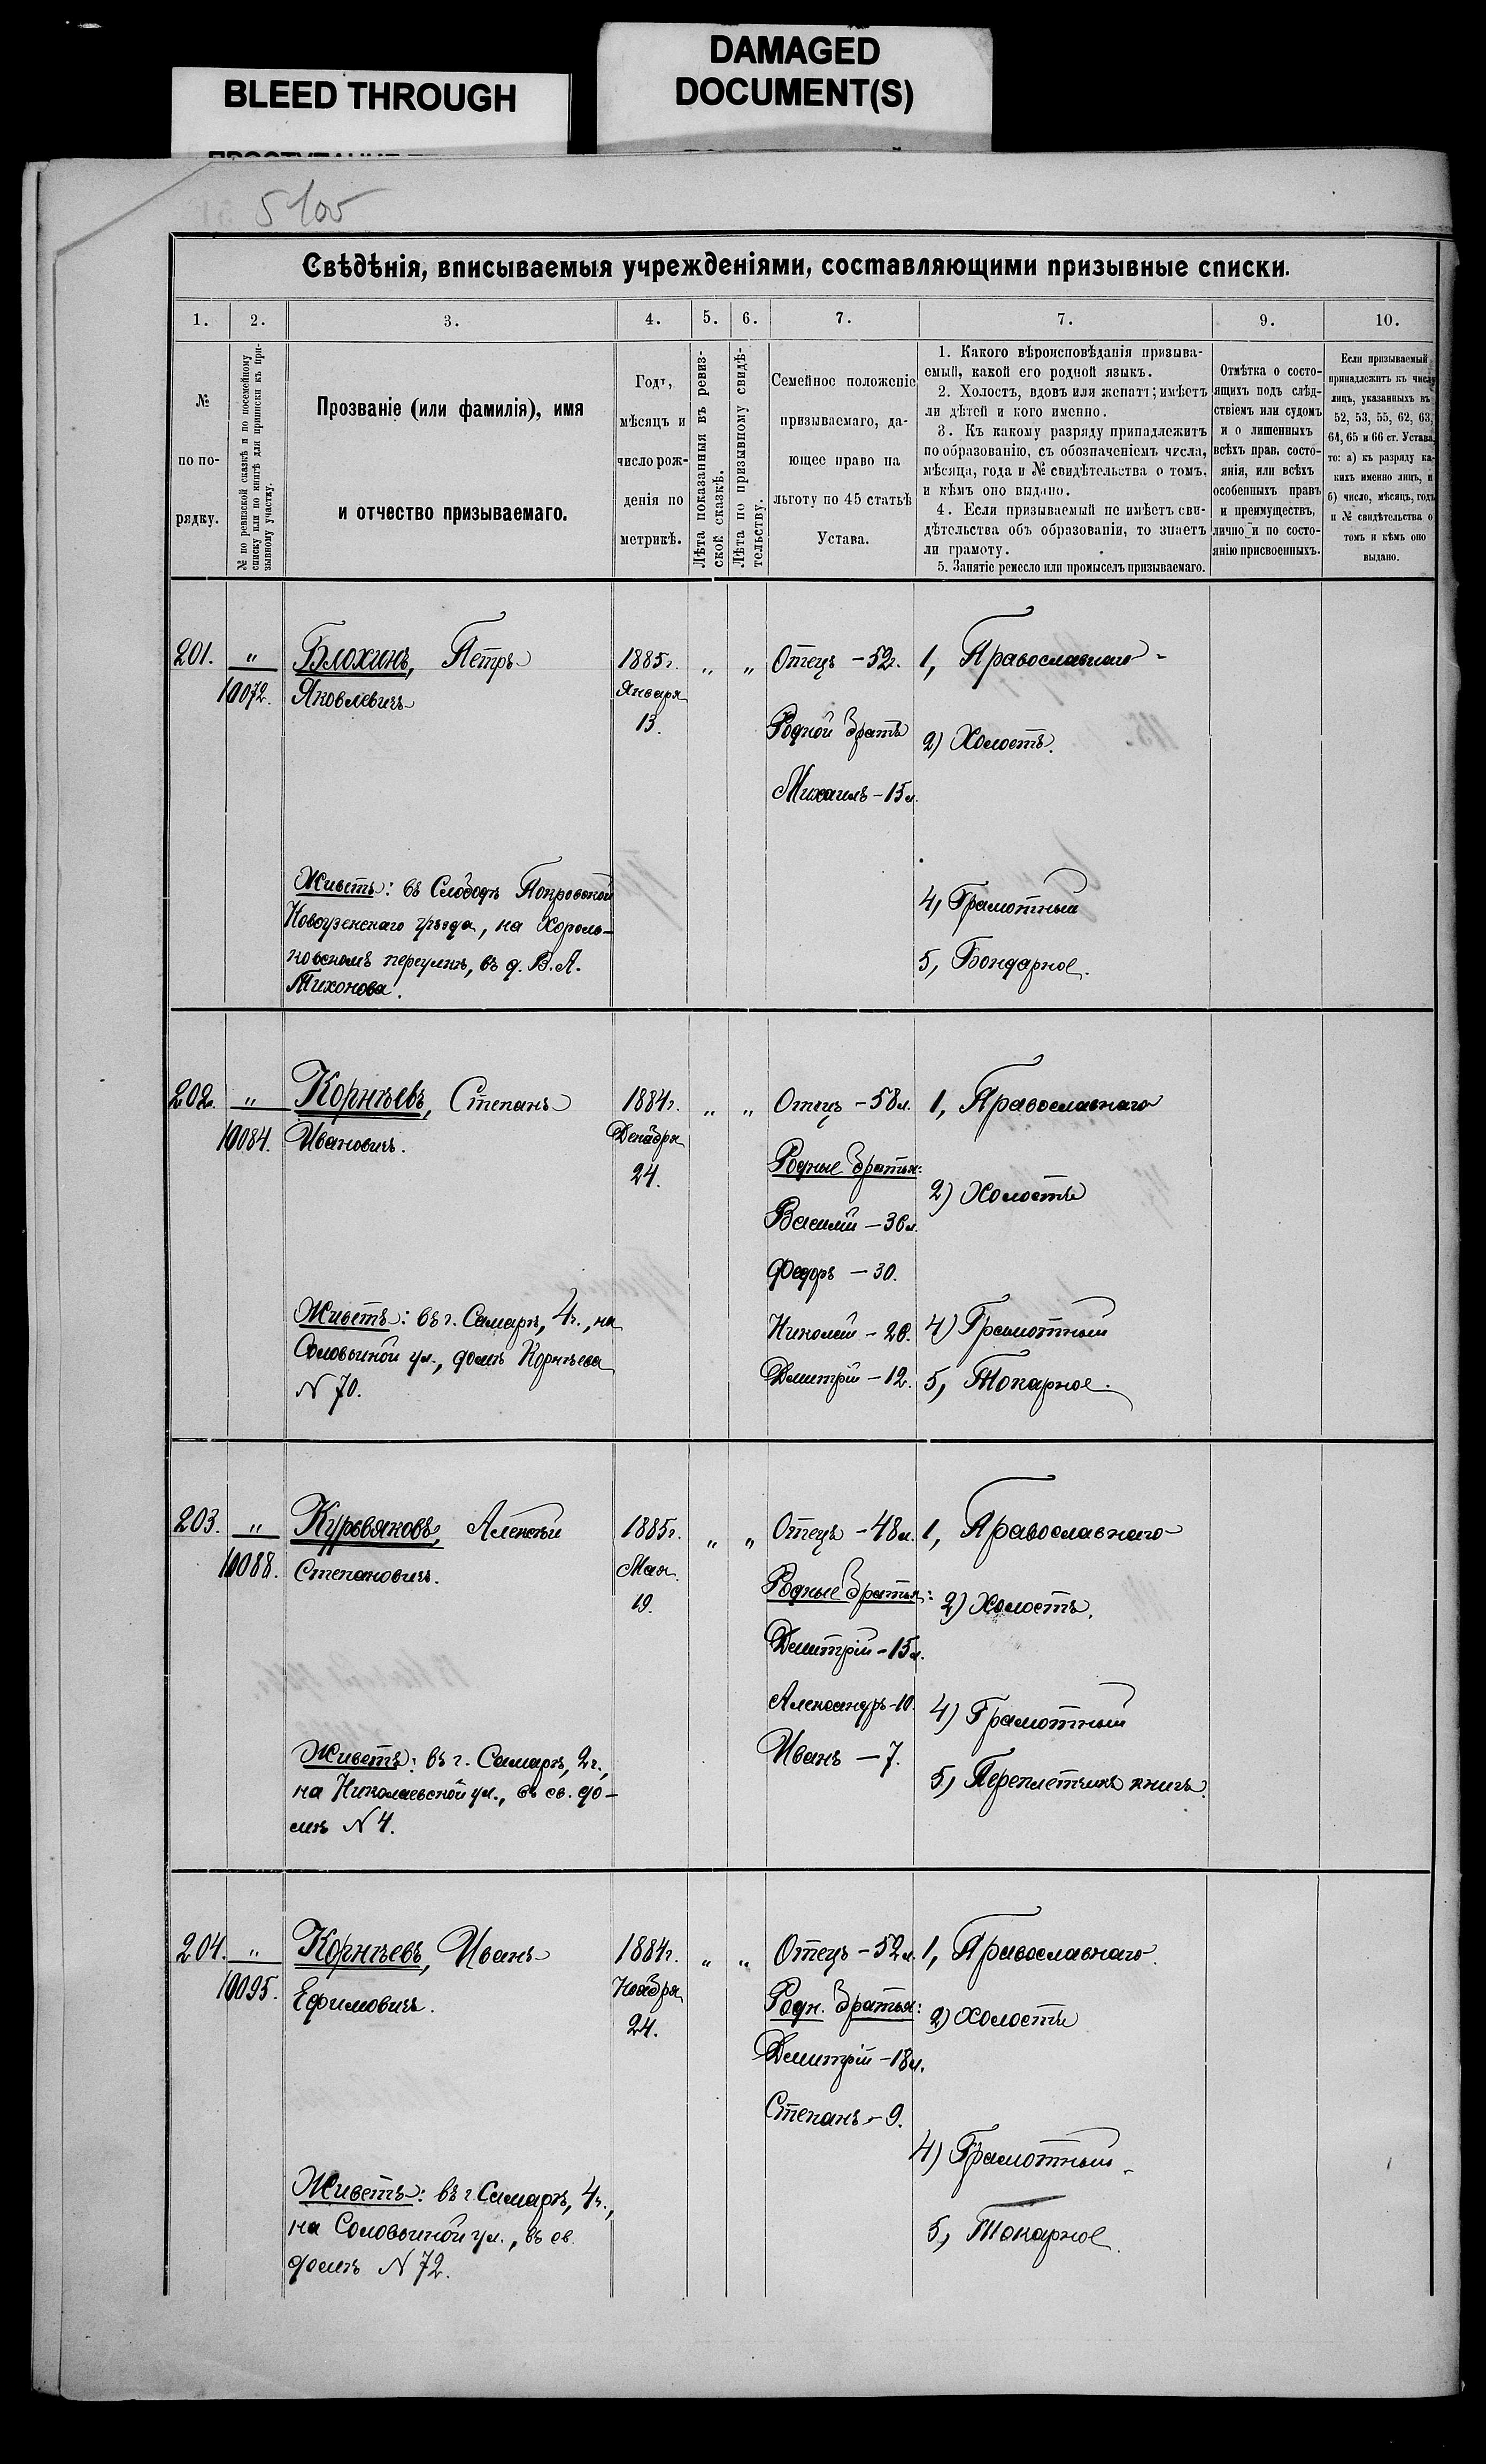 BLEED THROUGH
DAMAGED
DOCUMENT(S)
5 100
Свѣдѣнія, вписываемыя учрежденіями, составляющими призывные списки.
1. 2. 3. 4. 5. 6. 7. 7. 9. 10.
№
по по-
рядку.
№ по ревизской сказкѣ и по посемейному
списку или по книгѣ для приписки къ при-
зывному участку.
Прозваніе (или фамилія), имя
и отчество призываемаго.
Годъ,
мѣсяцъ и
число рож-
денія по
метрикѣ.
Лѣта показанныя въ ревиз-
ской сказкѣ.
Лѣта по призывному свидѣ-
тельству.
Семейное положеніе
призываемаго, да-
ющее право на
льготу по 45 статьѣ
Устава.
1. Какого вѣроисповѣданія призыва-
емый, какой его родной языкъ.
2. Холостъ, вдовъ или женатъ; имѣетъ
ли дѣтей и кого именно.
3. Къ какому разряду принадлежитъ
по образованію, съ обозначеніемъ числа,
мѣсяца, года и № свидѣтельства о томъ,
и кѣмъ оно выдано.
4. Если призываемый не имѣетъ сви-
дѣтельства объ образованіи, то знаетъ
ли грамоту.
5. Занятіе ремесло или промыселъ призываемаго.
Отмѣтка о состо-
ящихъ подъ слѣд-
ствіемъ или судомъ
и о лишенныхъ
всѣхъ прав. состо-
янія, или всѣхъ
особенныхъ правъ
и преимуществъ,
лично и по состо-
янію присвоенныхъ.
Если призываемый
принадлежитъ къ числу
лицъ, указанныхъ въ
52, 53, 55, 62, 63,
64, 65 и 66 ст. Устава,
то: а) къ разряду ка-
кихъ именно лицъ, и
б) число, мѣсяцъ, годъ
и № свидѣтельства о
томъ и кѣмъ оно
выдано.
201. " Блохинъ, Петръ 1885г. " " Отецъ - 52г. 1, Православнаго
10072. Яковлевичъ Января
13. Родной братъ 2) Холостъ.
Михаилъ - 15л.
Живетъ: въ Слободѣ Покровской
Новоузенскаго уѣзда, на Хороль- 4, Грамотный
повскомъ переулкѣ, въ д. В. А. 5, Бондарное.
Тихонова.
202. " Корнѣевъ, Степанъ 1884г. " " Отецъ - 58л. 1, Православнаго
10084. Ивановичъ. Декабря Родные братья:
24. 2) Холостъ
Василій - 36л.
Федоръ - 30.
Живетъ: въ г. Самарѣ, 4ч., на Николай - 20. 4) Грамотный
Соловьиной ул., домъ Корнѣева Дмитрій - 12. 5, Токарное.
N 70.
203. " Курвяковъ, Алексѣй 1885г. " " Отецъ - 48л. 1, Православнаго
10088. Степановичъ. Мая Родные братья:
19. 2) Холостъ.
Дмитрій - 15л.
Александръ - 10. 4) Грамотный
Живетъ: въ г. Самарѣ, 2ч., Иванъ - 7.
на Николаевской ул., въ св. до- 5, Переплетчикъ книгъ.
мѣ N 4.
204. " Корнѣевъ, Иванъ 1884г. " " Отецъ - 52л. 1, Православнаго
10095. Ефимовичъ. Ноября Родн. братья: 2) Холостъ
24. Дмитрій - 18л.
Степанъ - 9.
4) Грамотный
Живетъ: въ г. Самарѣ, 4ч.,
на Соловьиной ул., въ св. 5, Токарное.
домѣ N 72.